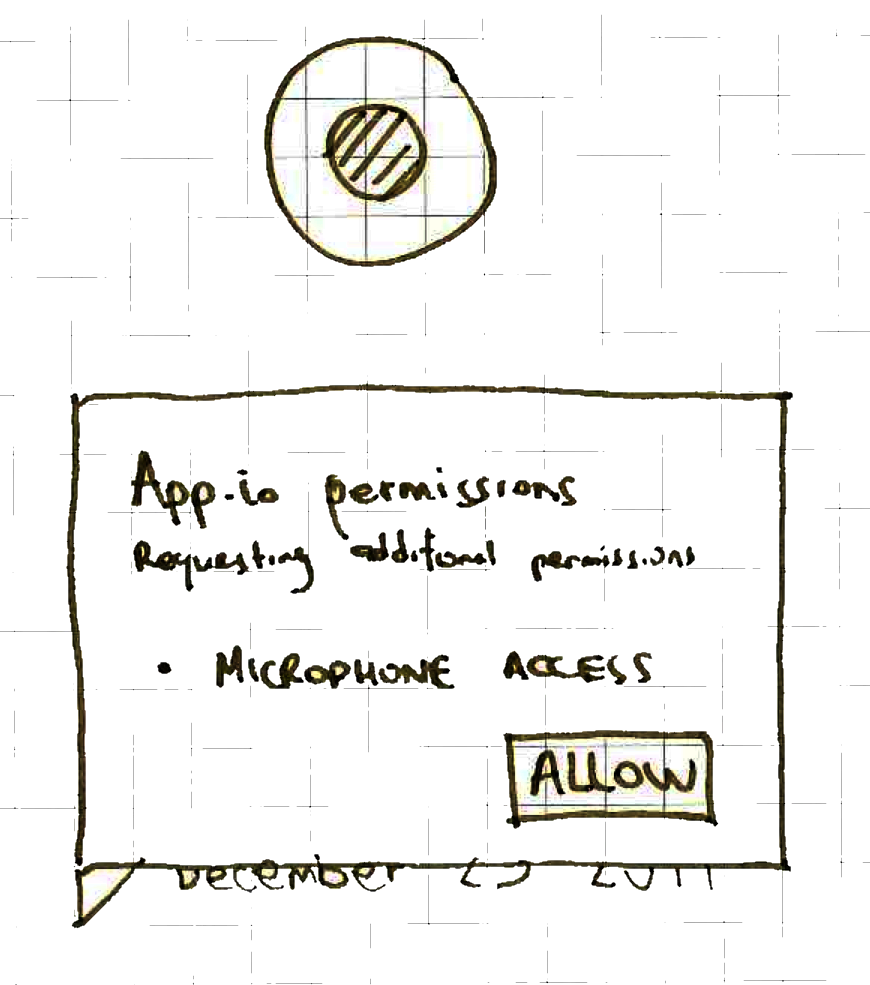 App.io permissions
Requesting additional permissions
• MICROPHONE ACCESS
ALLOW
December